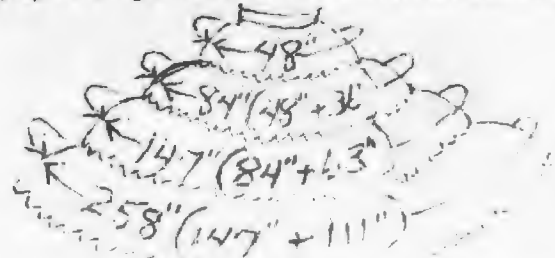 48"
84" (48" + 36
147" (84" + 63"
258" (147" + 111")